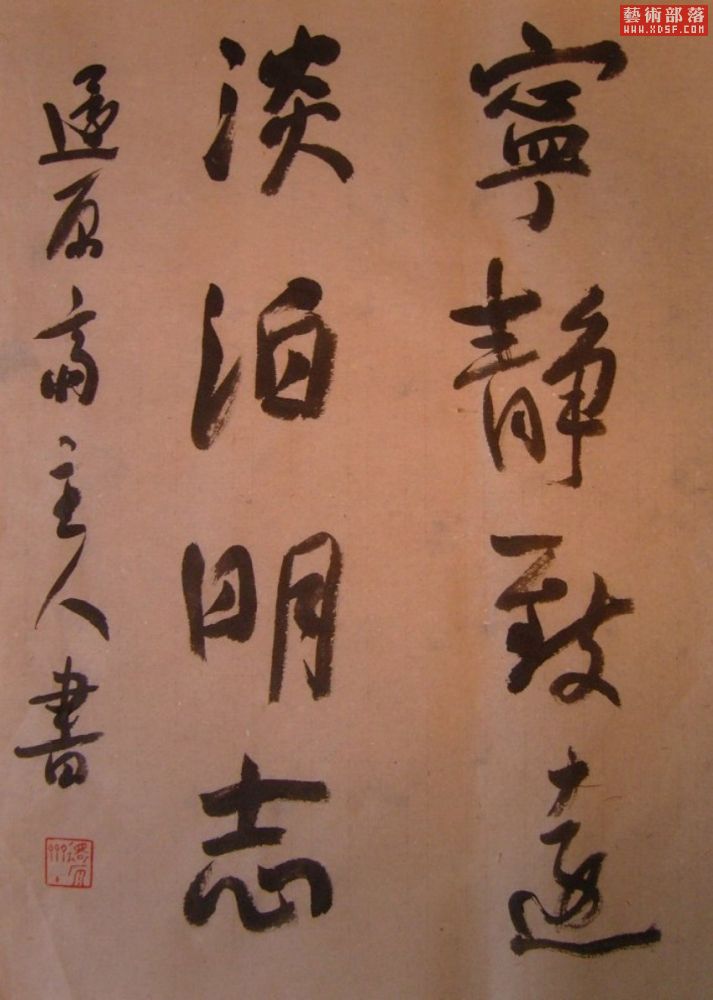 藝術部落
WWW.XDSF.COM
寧静致遠
淡泊明志
原斋主人書